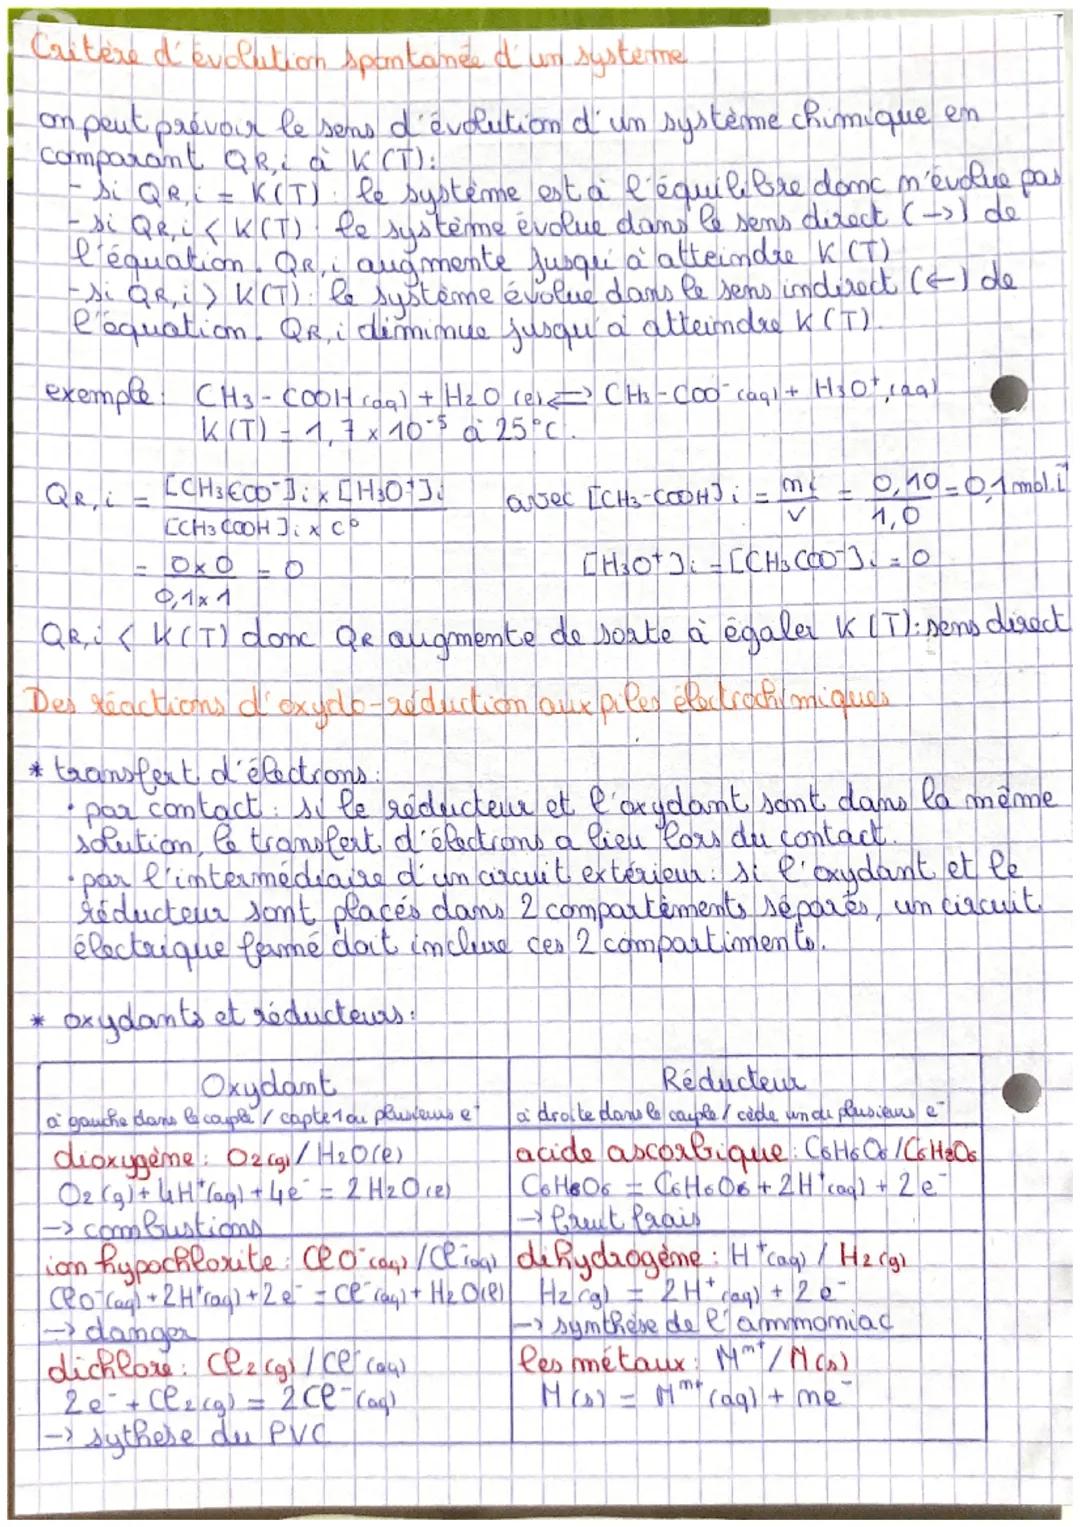 Critère d'évolution spontanée d'un système
on peut prévoir le sens d'évolution d'un système chimique en
comparant QR,i à K(T):
- si QR,i = K(T) : le système est à l'équilibre donc n'évolue pas
- si QR,i < K(T) : le système évolue dans le sens direct (->) de
l'équation. QR,i augmente jusqu'à atteindre K(T)
- si QR,i > K(T) : le système évolue dans le sens indirect (<-) de
l'équation. QR,i diminue jusqu'à atteindre K(T).
exemple : CH3-COOH(aq) + H2O(l) ⇌ CH3-COO⁻(aq) + H3O⁺(aq)
K(T) = 1,7 × 10⁻⁵ à 25°C.
QR,i = [CH3COO⁻]i × [H3O⁺]i / [CH3COOH]i × C° avec [CH3-COOH]i = ni/V = 0,10/1,0 = 0,1 mol.L⁻¹
= 0×0 / 0,1×1 = 0 [H3O⁺]i = [CH3COO⁻]i = 0
QR,i < K(T) donc QR augmente de sorte à égaler K(T): sens direct
Des réactions d'oxydo-réduction aux piles électrochimiques
* transfert d'électrons :
• par contact : si le réducteur et l'oxydant sont dans la même
solution, le transfert d'électrons a lieu lors du contact.
• par l'intermédiaire d'un circuit extérieur : si l'oxydant et le
réducteur sont placés dans 2 compartiments séparés, un circuit
électrique fermé doit inclure ces 2 compartiments.
* oxydants et réducteurs :
Oxydant
à gauche dans le couple / capte 1 ou plusieurs e⁻
Réducteur
à droite dans le couple / cède un ou plusieurs e⁻
dioxygène : O2(g) / H2O(l)
O2(g) + 4H⁺(aq) + 4e⁻ = 2H2O(l)
-> combustions
acide ascorbique : C6H6O6 / C6H8O6
C6H8O6 = C6H6O6 + 2H⁺(aq) + 2e⁻
-> fruit frais
ion hypochlorite : ClO⁻(aq) / Cl⁻(aq)
ClO⁻(aq) + 2H⁺(aq) + 2e⁻ = Cl⁻(aq) + H2O(l)
-> danger
dihydrogène : H⁺(aq) / H2(g)
H2(g) = 2H⁺(aq) + 2e⁻
-> synthèse de l'ammoniac
dichlore : Cl2(g) / Cl⁻(aq)
2e⁻ + Cl2(g) = 2Cl⁻(aq)
-> sythèse du PVC
les métaux : Mⁿ⁺ / M(s)
M(s) = Mⁿ⁺(aq) + ne⁻